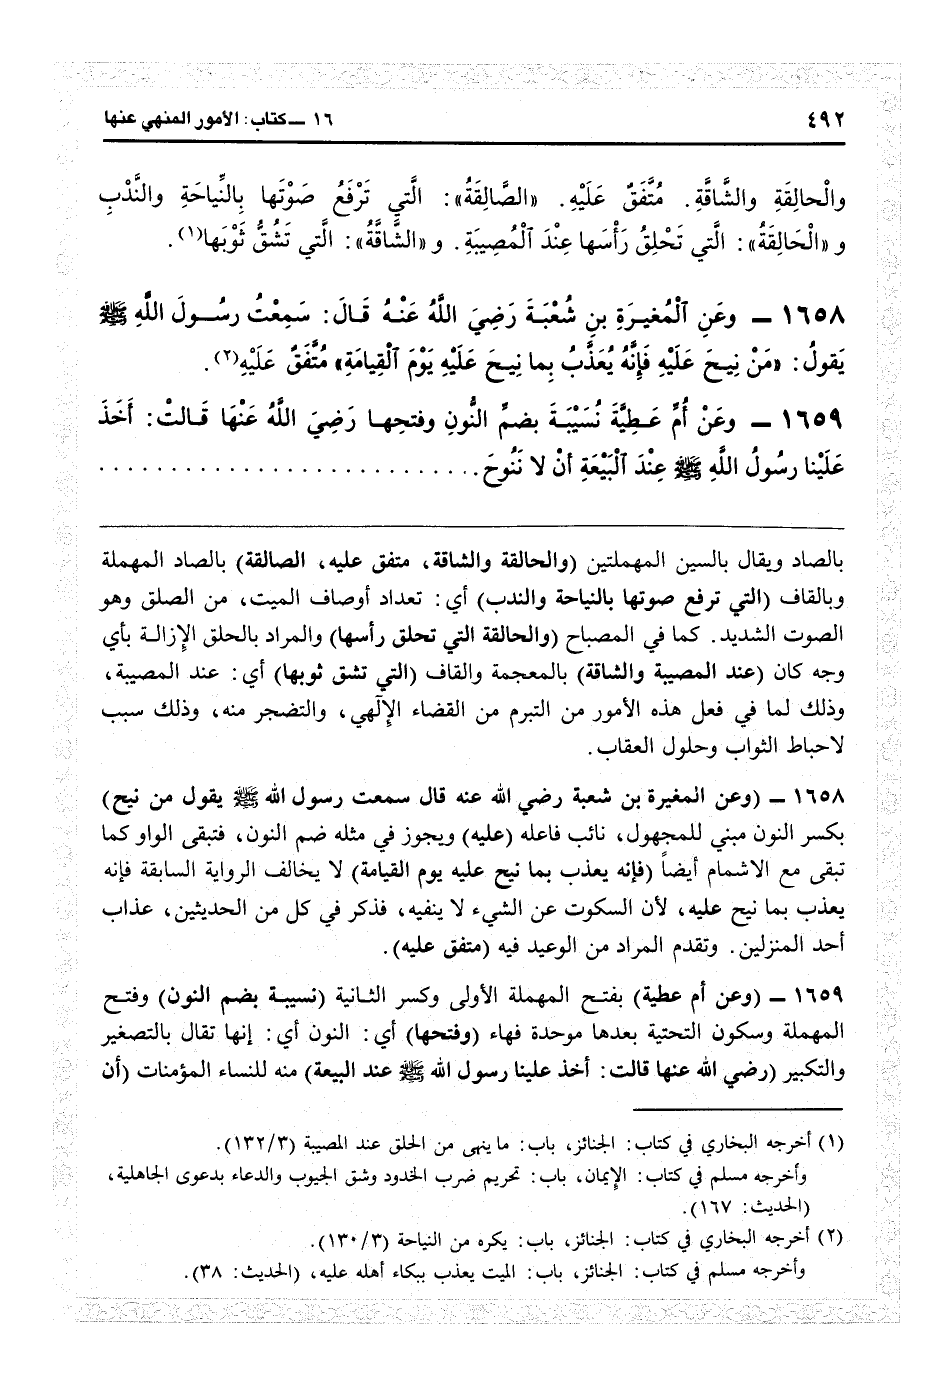 ٤٩٢ ١٦ ـ كتاب: الأمور المنهي عنها
والْحالِقَةِ والشَّاقَّةِ. مُتَّفَقٌ عَلَيْهِ. «الصَّالِقَةُ»: الَّتي تَرْفَعُ صَوْتَها بِالنِّياحَةِ والنَّدْبِ
و«الْحَالِقَةُ»: الَّتي تَحْلِقُ رَأْسَها عِنْدَ ٱلْمُصِيبَةِ. و«الشَّاقَّةُ»: الَّتي تَشُقُّ ثَوْبَها(١).
١٦٥٨ ـ وعَنِ ٱلْمُغيـرَةِ بنِ شُعْبَةَ رَضِيَ اللَّهُ عَنْـهُ قَـالَ: سَمِعْتُ رسُـولَ اللَّهِ ﷺ
يَقولُ: «مَنْ نِيـحَ عَلَيْهِ فَإِنَّهُ يُعَذَّبُ بِما نِيـحَ عَلَيْهِ يَوْمَ ٱلْقِيامَةِ» مُتَّفَقٌ عَلَيْهِ(٢).
١٦٥٩ ـ وعَنْ أُمِّ عَـطِيَّةَ نُسَيْبَـةَ بضمِّ النُّونِ وفتحِهـا رَضِيَ اللَّهُ عَنْهَا قَـالتْ: أَخَذَ
عَلَيْنا رسُولُ اللَّهِ ﷺ عِنْدَ ٱلْبَيْعَةِ أَنْ لا نَنُوحَ. . . . . . . . . . . . . . . . . . . . . . . . .
بالصاد ويقال بالسين المهملتين (والحالقة والشاقة، متفق عليه، الصالقة) بالصاد المهملة
وبالقاف (التي ترفع صوتها بالنياحة والندب) أي: تعداد أوصاف الميت، من الصلق وهو
الصوت الشديد. كما في المصباح (والحالقة التي تحلق رأسها) والمراد بالحلق الإزالـة بأي
وجه كان (عند المصيبة والشاقة) بالمعجمة والقاف (التي تشق ثوبها) أي: عند المصيبة،
وذلك لما في فعل هذه الأمور من التبرم من القضاء الإلٓهي، والتضجر منه، وذلك سبب
لاحباط الثواب وحلول العقاب.
١٦٥٨ ـ (وعن المغيرة بن شعبة رضي الله عنه قال سمعت رسول الله ﷺ يقول من نيح)
بكسر النون مبني للمجهول، نائب فاعله (عليه) ويجوز في مثله ضم النون، فتبقى الواو كما
تبقى مع الاشمام أيضاً (فإنه يعذب بما نيح عليه يوم القيامة) لا يخالف الرواية السابقة فإنه
يعذب بما نيح عليه، لأن السكوت عن الشيء لا ينفيه، فذكر في كل من الحديثين، عذاب
أحد المنزلين. وتقدم المراد من الوعيد فيه (متفق عليه).
١٦٥٩ ـ (وعن أم عطية) بفتـح المهملة الأولى وكسر الثـانية (نسيبـة بضم النون) وفتـح
المهملة وسكون التحتية بعدها موحدة فهاء (وفتحها) أي: النون أي: إنها تقال بالتصغير
والتكبير (رضي الله عنها قالت: أخذ علينا رسول الله ﷺ عند البيعة) منه للنساء المؤمنات (أن
(١) أخرجه البخاري في كتاب: الجنائز، باب: ما ينهى من الحلق عند المصيبة (١٣٢/٣).
وأخرجه مسلم في كتاب: الإيمان، باب: تحريم ضرب الخدود وشق الجيوب والدعاء بدعوى الجاهلية،
(الحديث: ١٦٧).
(٢) أخرجه البخاري في كتاب: الجنائز، باب: يكره من النياحة (١٣٠/٣).
وأخرجه مسلم في كتاب: الجنائز، باب: الميت يعذب ببكاء أهله عليه، (الحديث: ٣٨).